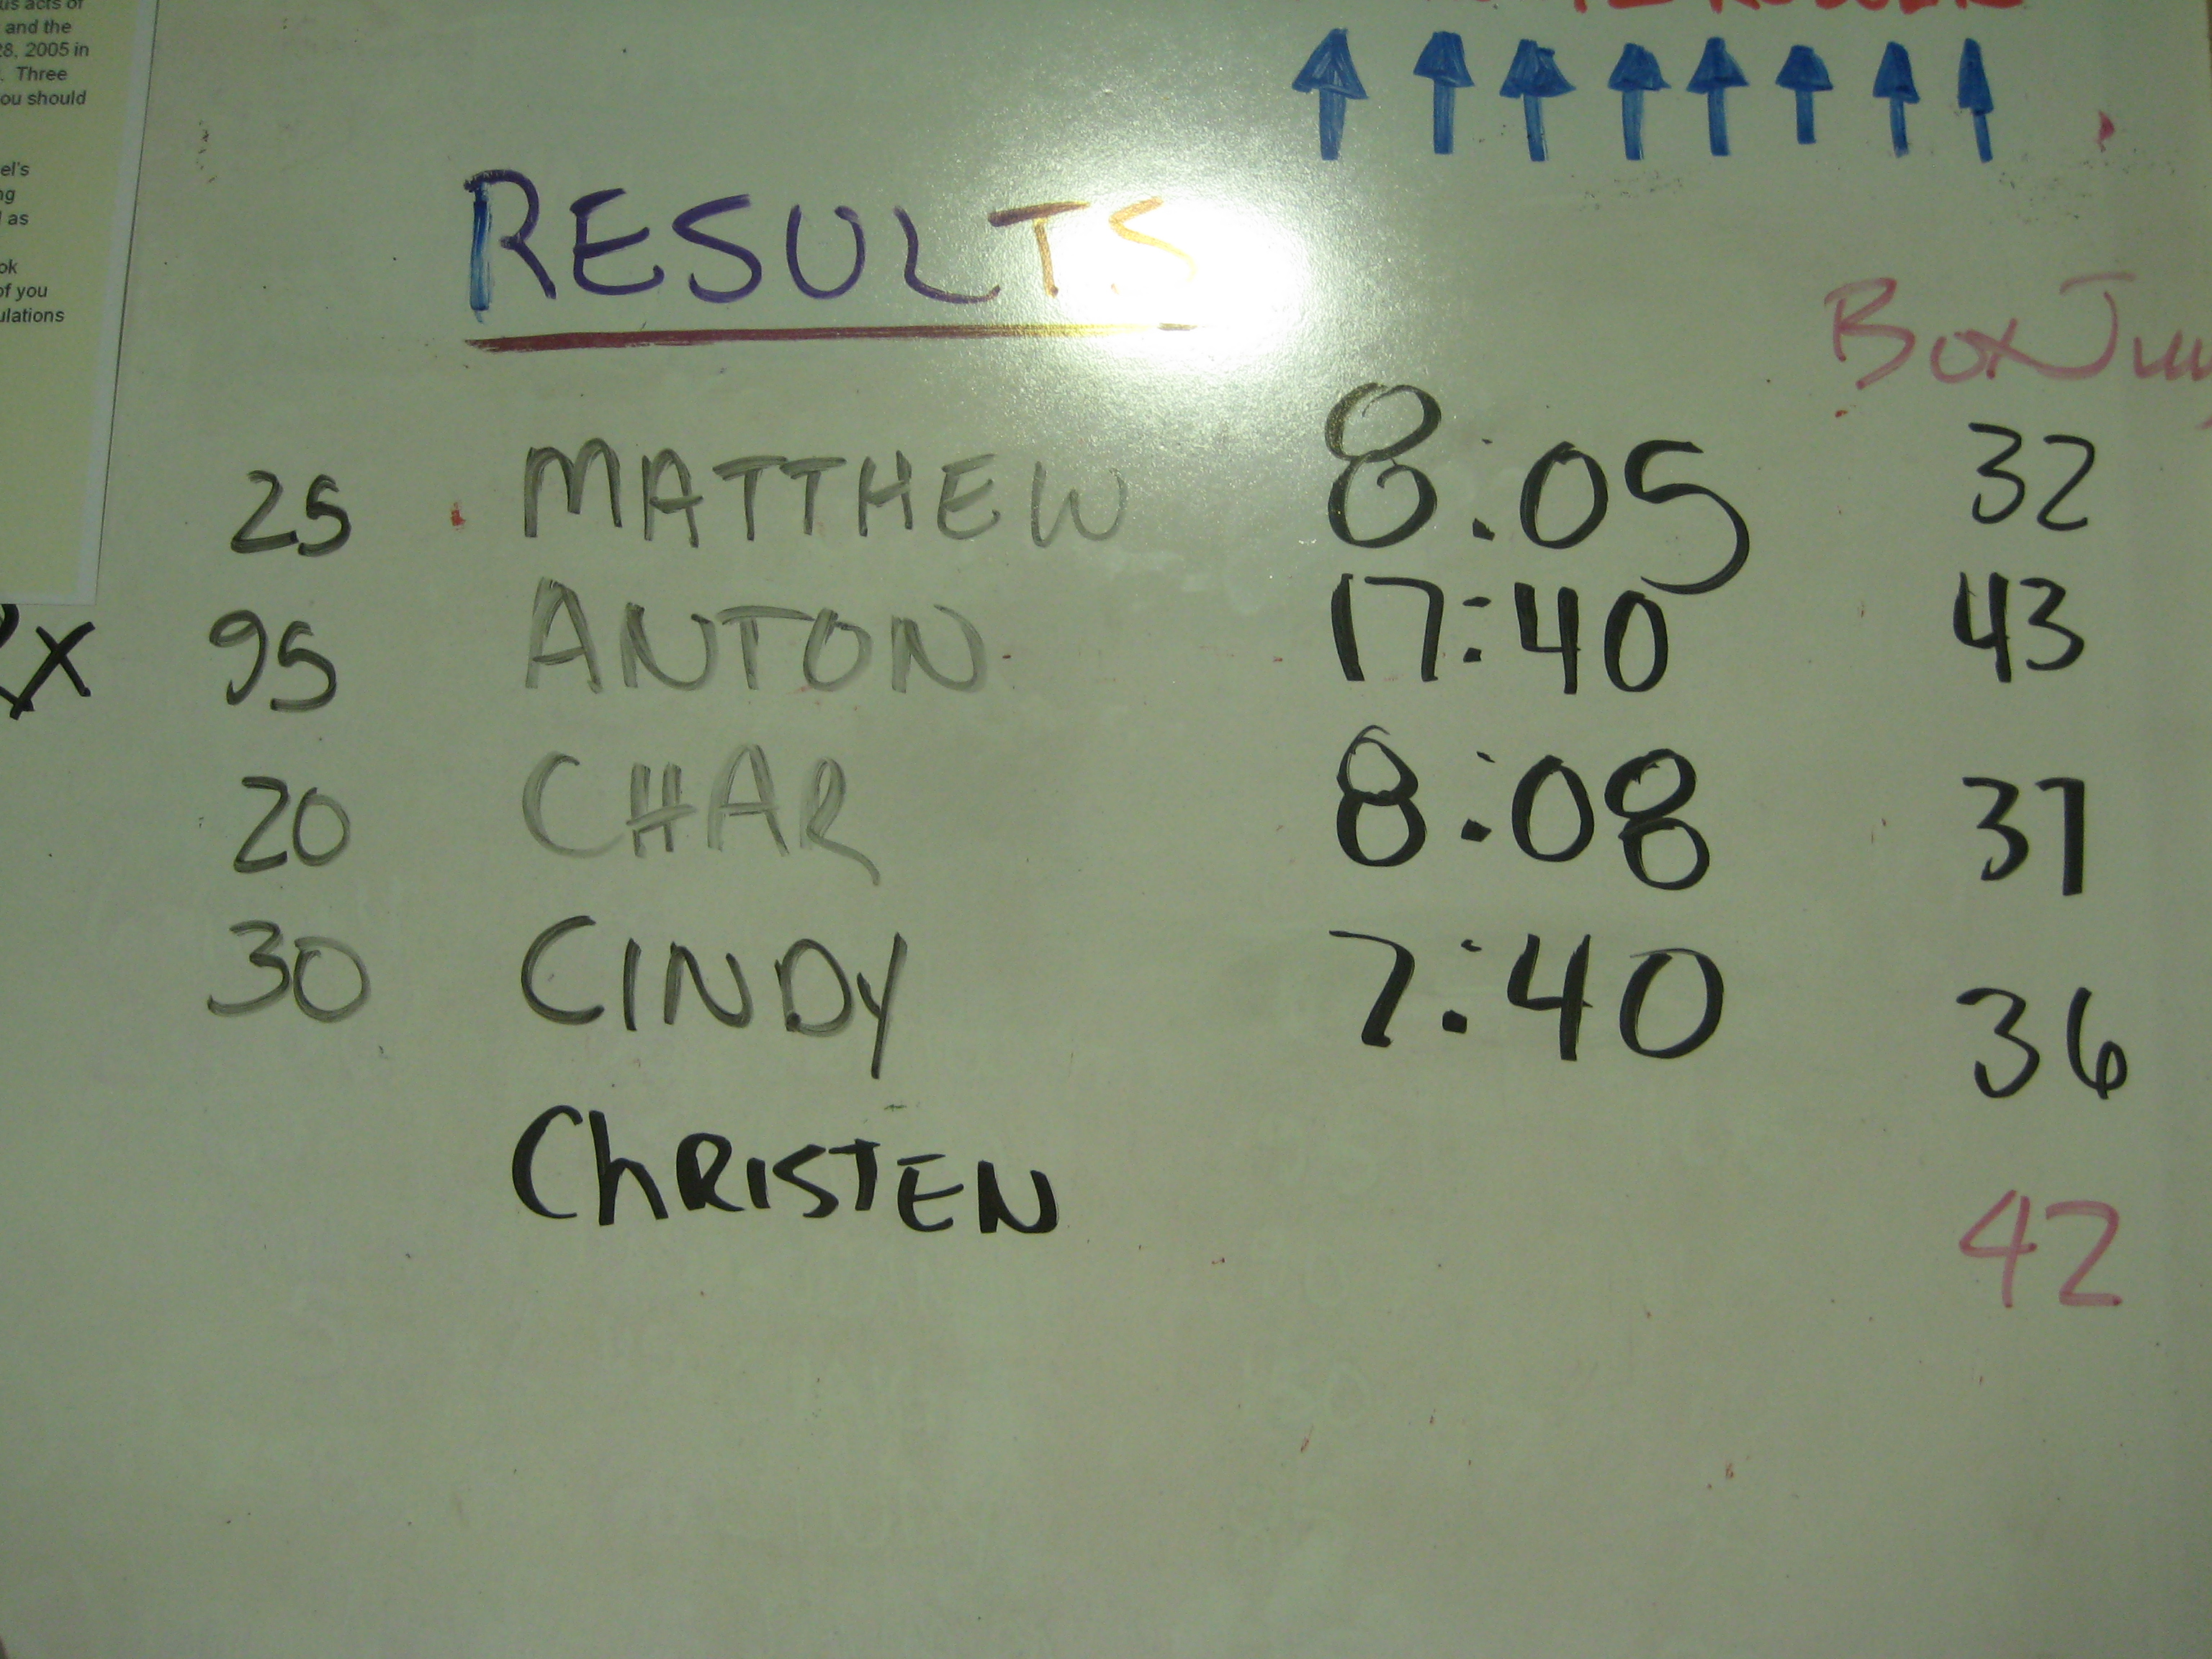 us acts of
and the
28, 2005 in
Three
ou should
el's
ng
as
ok
of you
ulations
RESULTS
Box Jum
25 MATTHEW 8:05 32
RX 95 ANTON 17:40 43
20 CHAR 8:08 37
30 CINDY 7:40 36
ChRISTEN 42